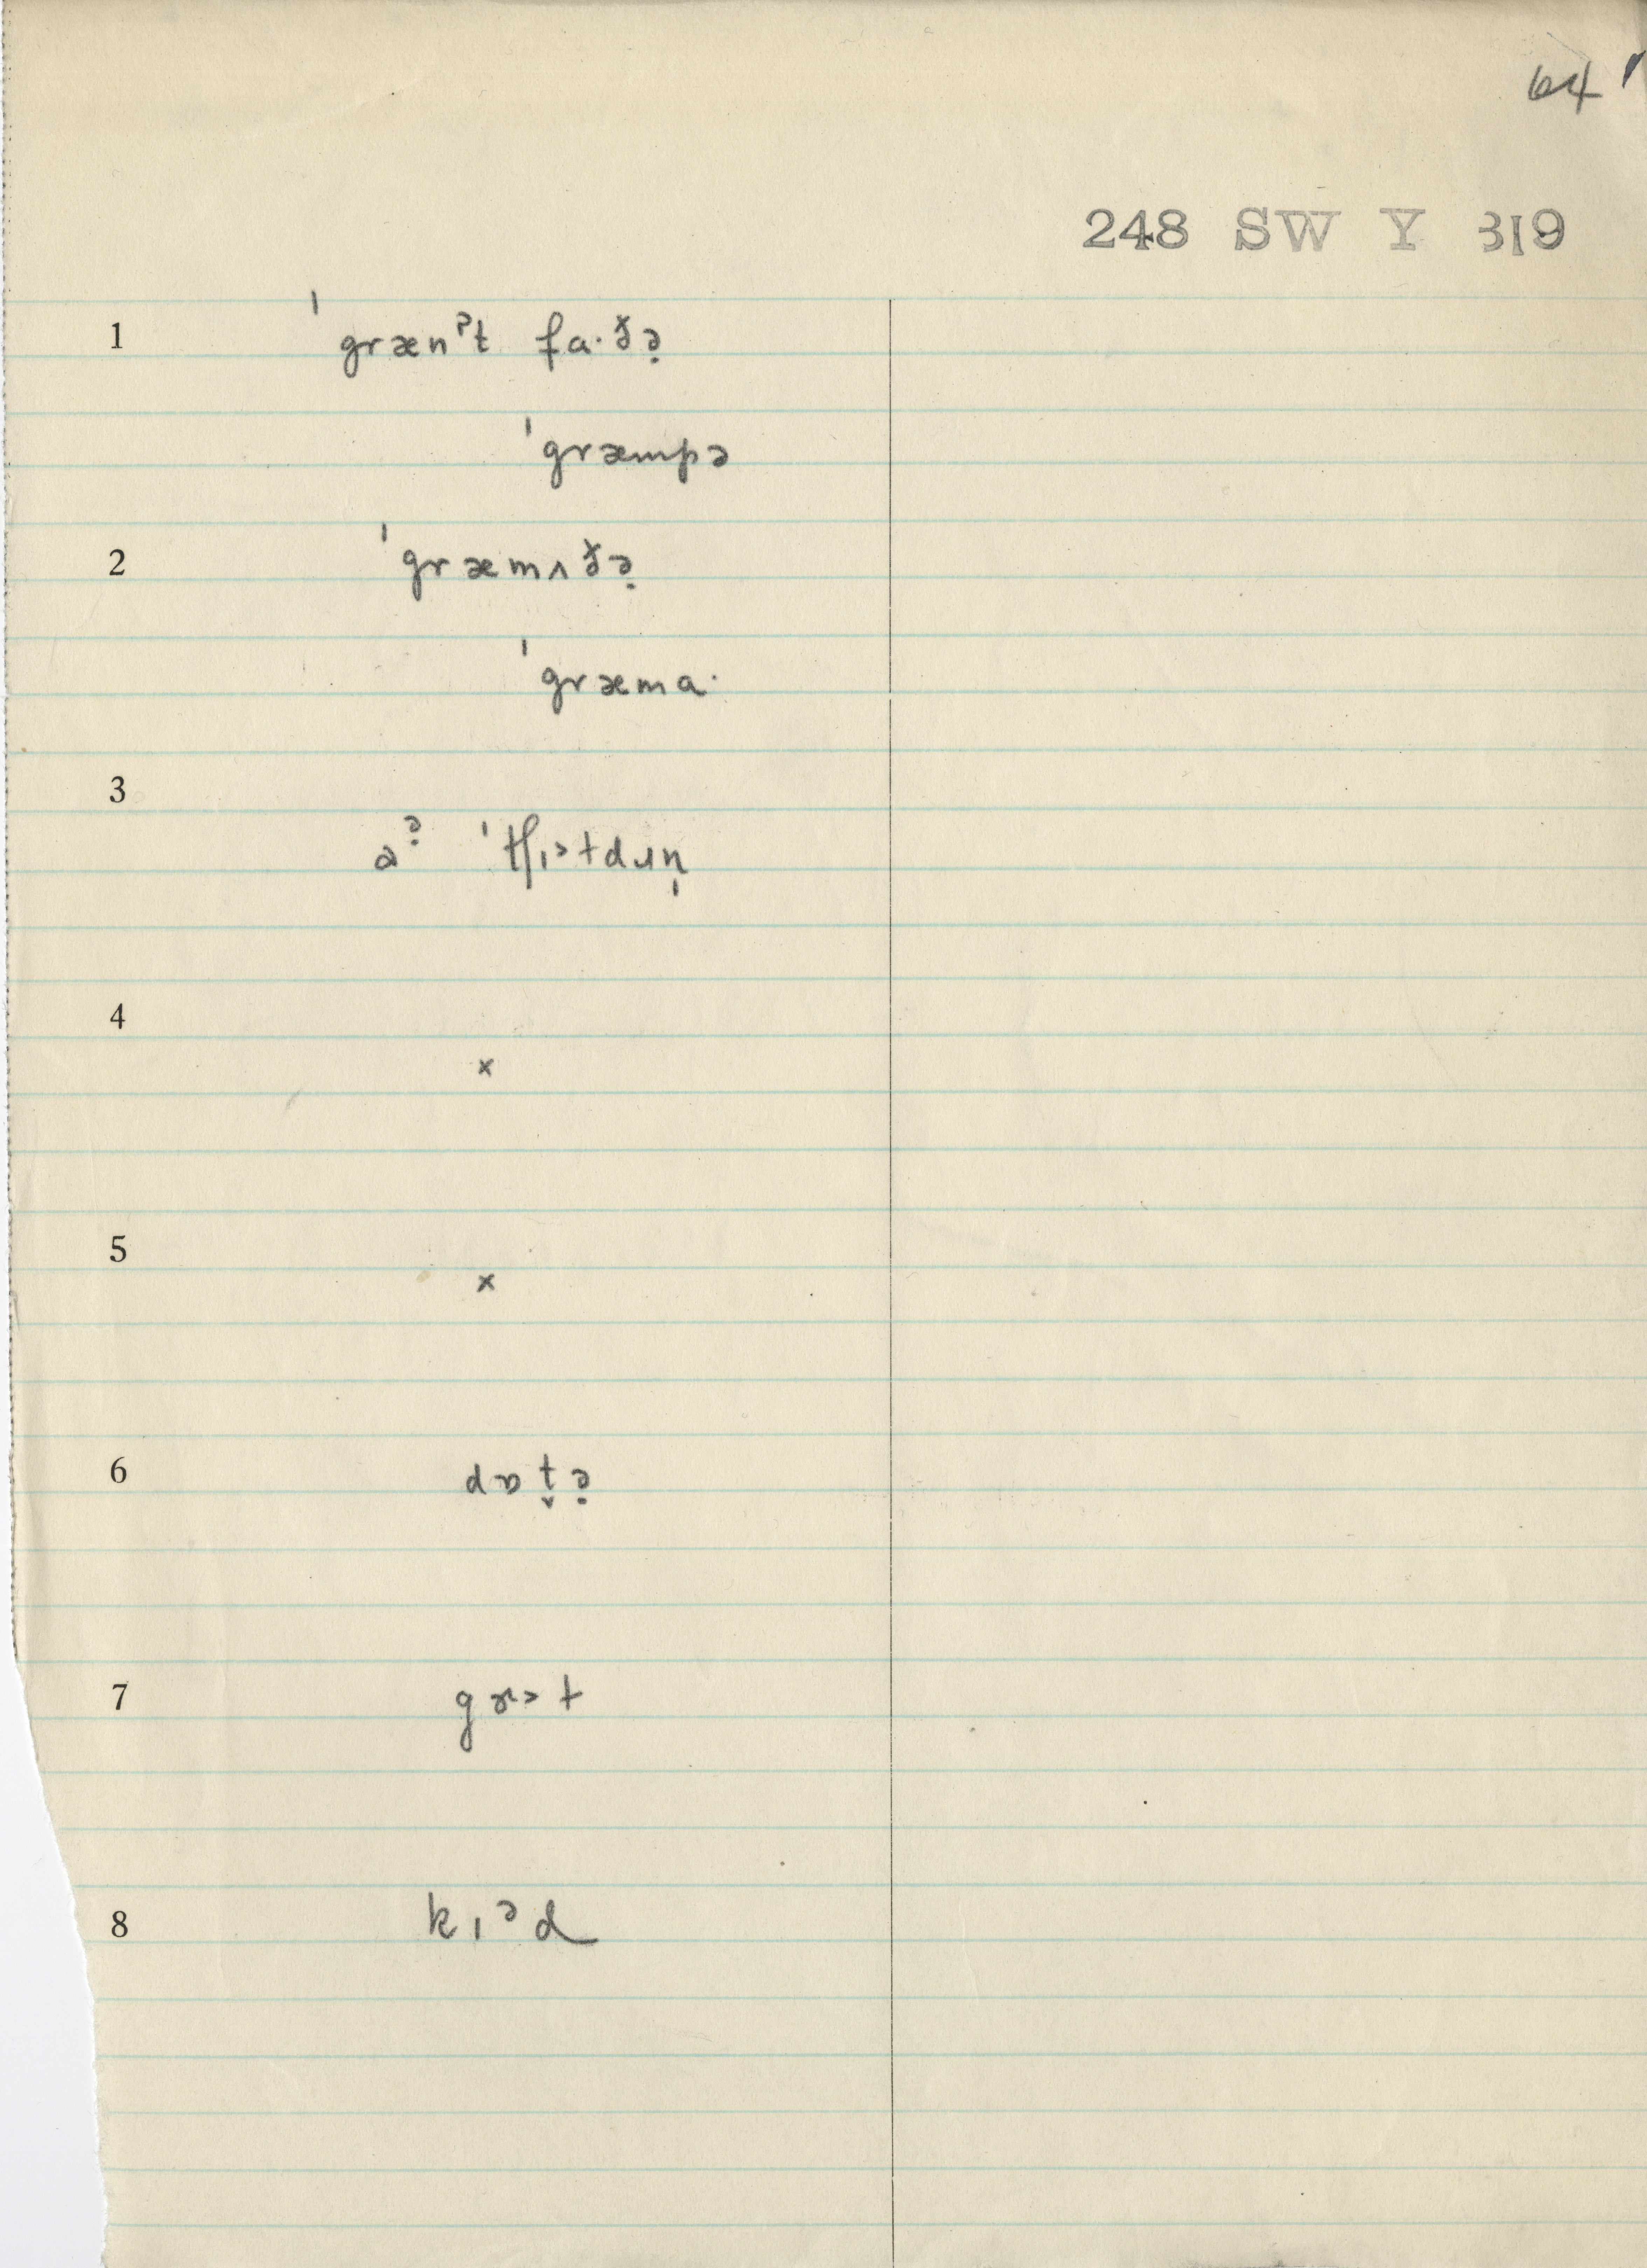 64
248 SW Y 319
1 ˈgrænˀt fa·ðə̣
ˈgræmpə
2 ˈgræmʌðə̣
ˈgræma·
3 ˈtʃɪ>tdɹɪn̩
4 x
5 x
6 dɒt̬ə̣
7
8 kɪᵊd